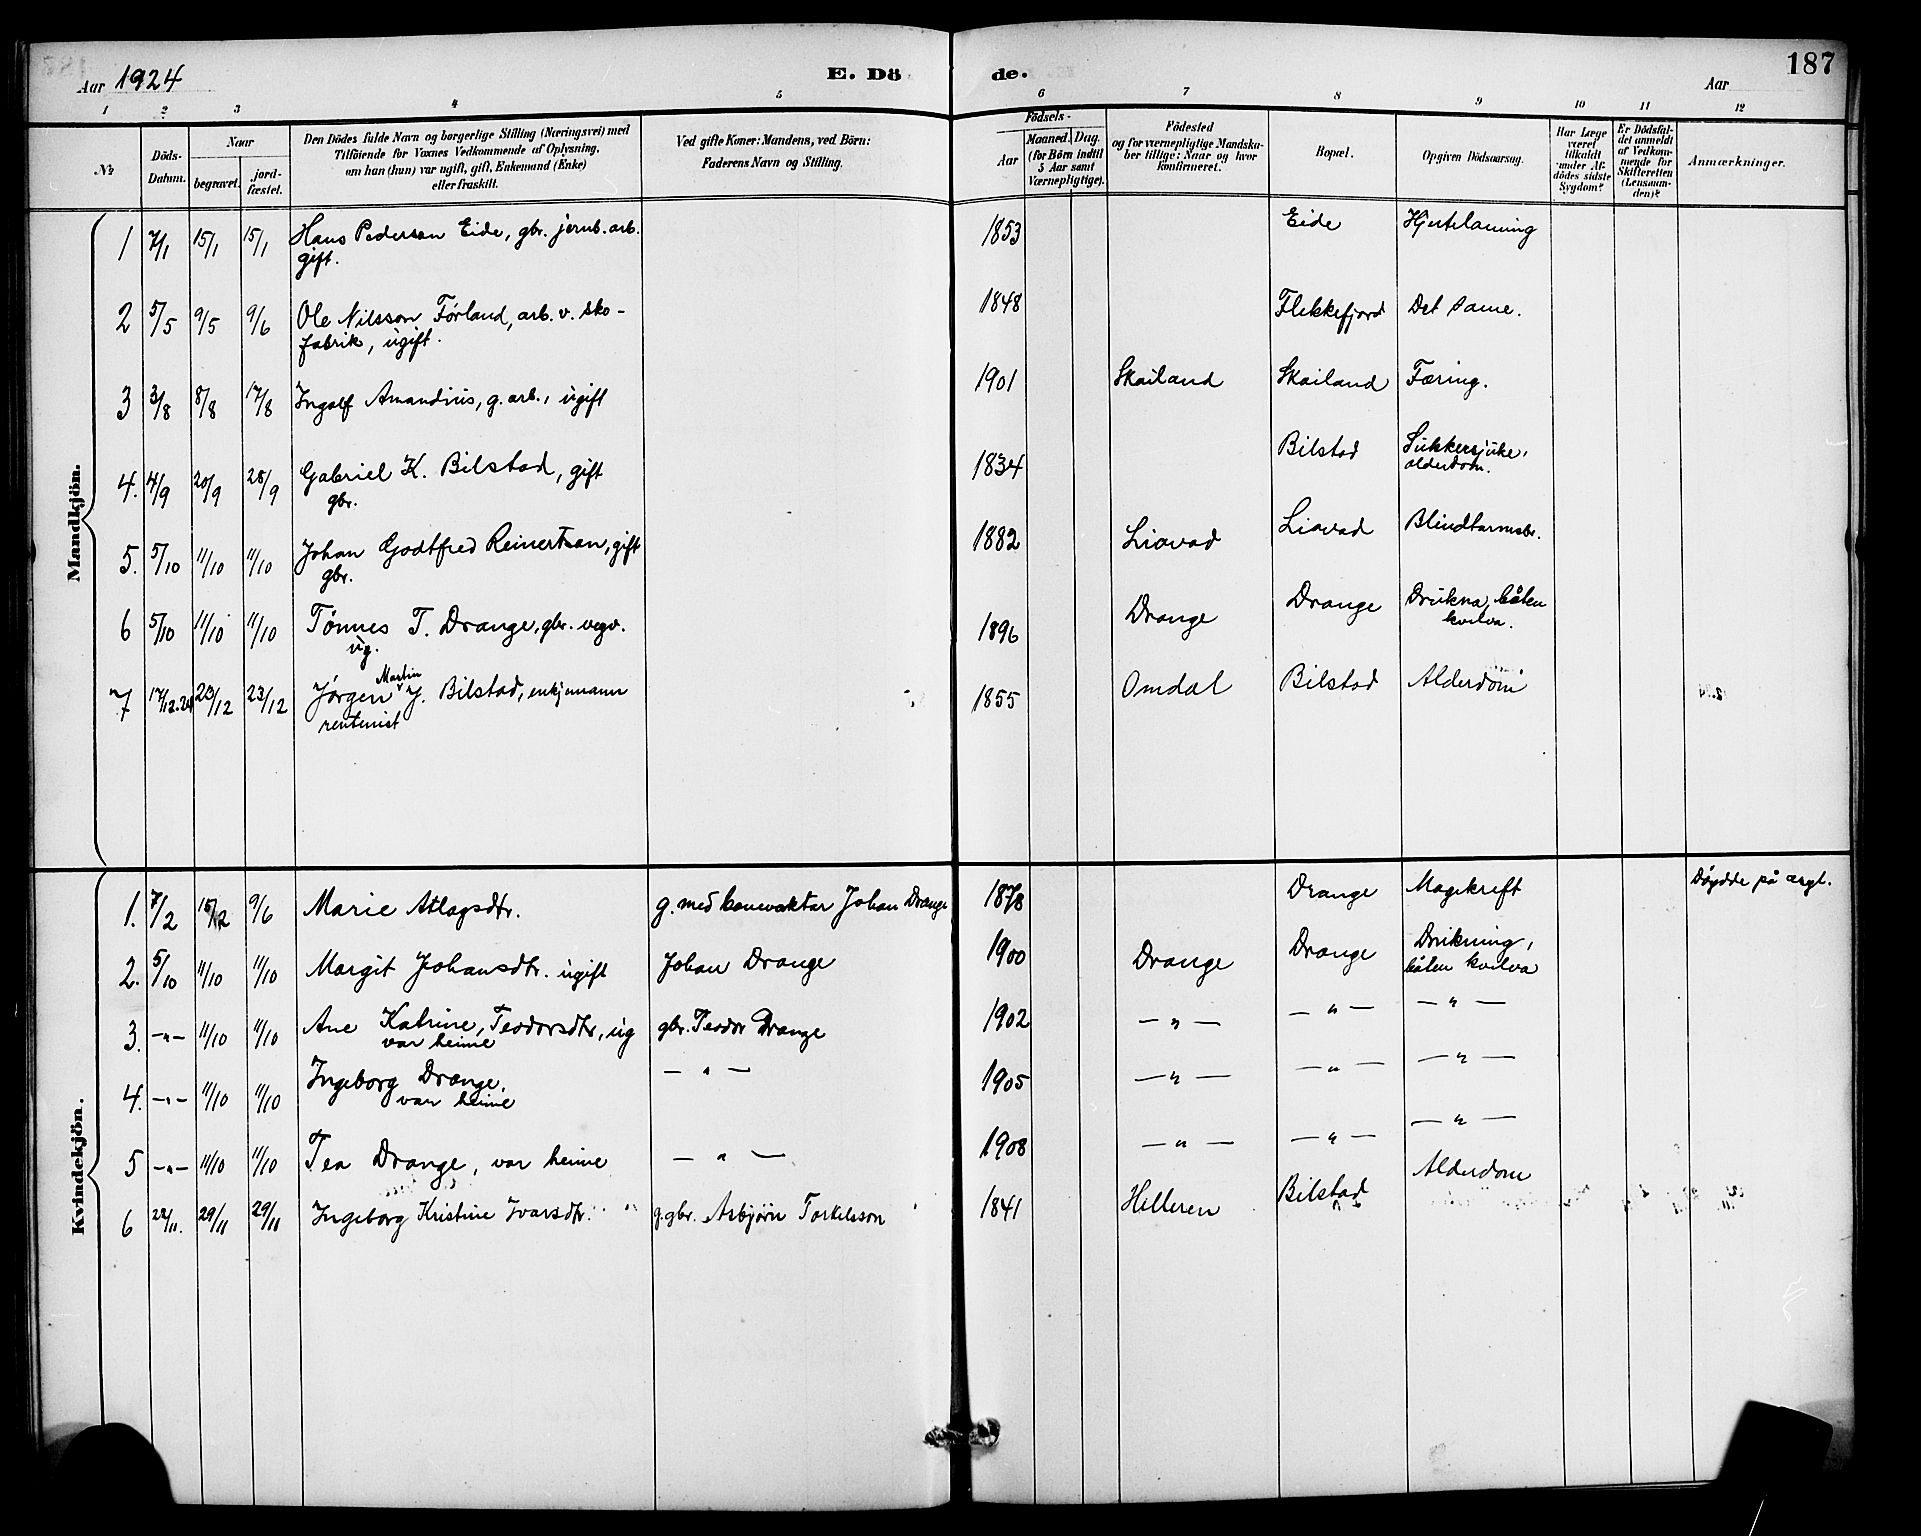 Aar 1924 E. Dö de. Aar 187
1 2 3 4 5 6 7 8 9 10 11 12
No Döds-Datum. Naar begravet. jord-fæstet. Den Dödes fulde Navn og borgerlige Stilling (Næringsvei) med Tilföiende for Voxnes Vedkommende af Oplysning, om han (hun) var ugift, gift, Enkemand (Enke) eller fraskilt. Ved gifte Koner: Mandens, ved Börn: Faderens Navn og Stilling. Födsels- Aar Maaned. Dag. (for Börn indtil 5 Aar samt Værnepligtige). Födested og for værnepligtige Mandskaber tillige: Naar og hvor konfirmeret. Bopæl. Opgiven Dödsaarsag. Har Læge været tilkaldt under Afdödes sidste Sygdom? Er Dödsfaldet anmeldt af Vedkommende for Skifteretten (Lensmanden)? Anmærkninger.
Mandkjön.
1 7/1 15/1 15/1 Hans Pedersen Eide, gbr. jernb. arb. 1853 Eide Hjertelaming
gift.
2 5/5 9/5 9/6 Ole Nilsson Førland, arb. v. sko- 1848 Flekkefjord Det same.
fabrik, ugift.
3 3/8 8/8 17/8 Ingolf Amandius, g. arb., ugift 1901 Skailand Skailand Tæring.
4. 14/9 20/9 28/9 Gabriel K. Bilstad, gift 1834 Bilstad Sukkersjuke,
gbr. alderdom.
5. 5/10 11/10 11/10 Johan Godtfred Reinertsen, gift 1882 Liavad Liavad Blindtarmsbr.
gbr.
6 5/10 11/10 11/10 Tønnes T. Drange, gbr. vegv. 1896 Drange Drange Drukna, båten
ug. kvelva.
Martin
7 17/12.24 23/12 23/12 Jørgen J. Bilstad, enkjemann 1855 Omdal Bilstad Alderdom
rentenist
Kvindekjön.
1. 7/2 15/2 9/6 Marie Atlagsdtr. g. med banevaktar Johan Drange 1878 Drange Magekreft Døydde på
2. 5/10 11/10 11/10 Margit Johansdtr. ugift Johan Drange 1900 Drange Drange Drukning,
båten kvelva
3. -"- 11/10 11/10 Ane Katrine, Teodorsdtr, ug gbr. Teodor Drange 1902 -"- -"- -"-
var heime
4. -"- 11/10 11/10 Ingeborg Drange, -"- 1905 -"- -"- -"-
var heime
5 -"- 11/10 11/10 Tea Drange, var heime -"- 1908 -"- -"- -"-
6 22/11. 29/11 29/11 Ingeborg Kristine Ivarsdtr. g. gbr. Asbjørn Torkelsson 1841 Helleren Bilstad Alderdom